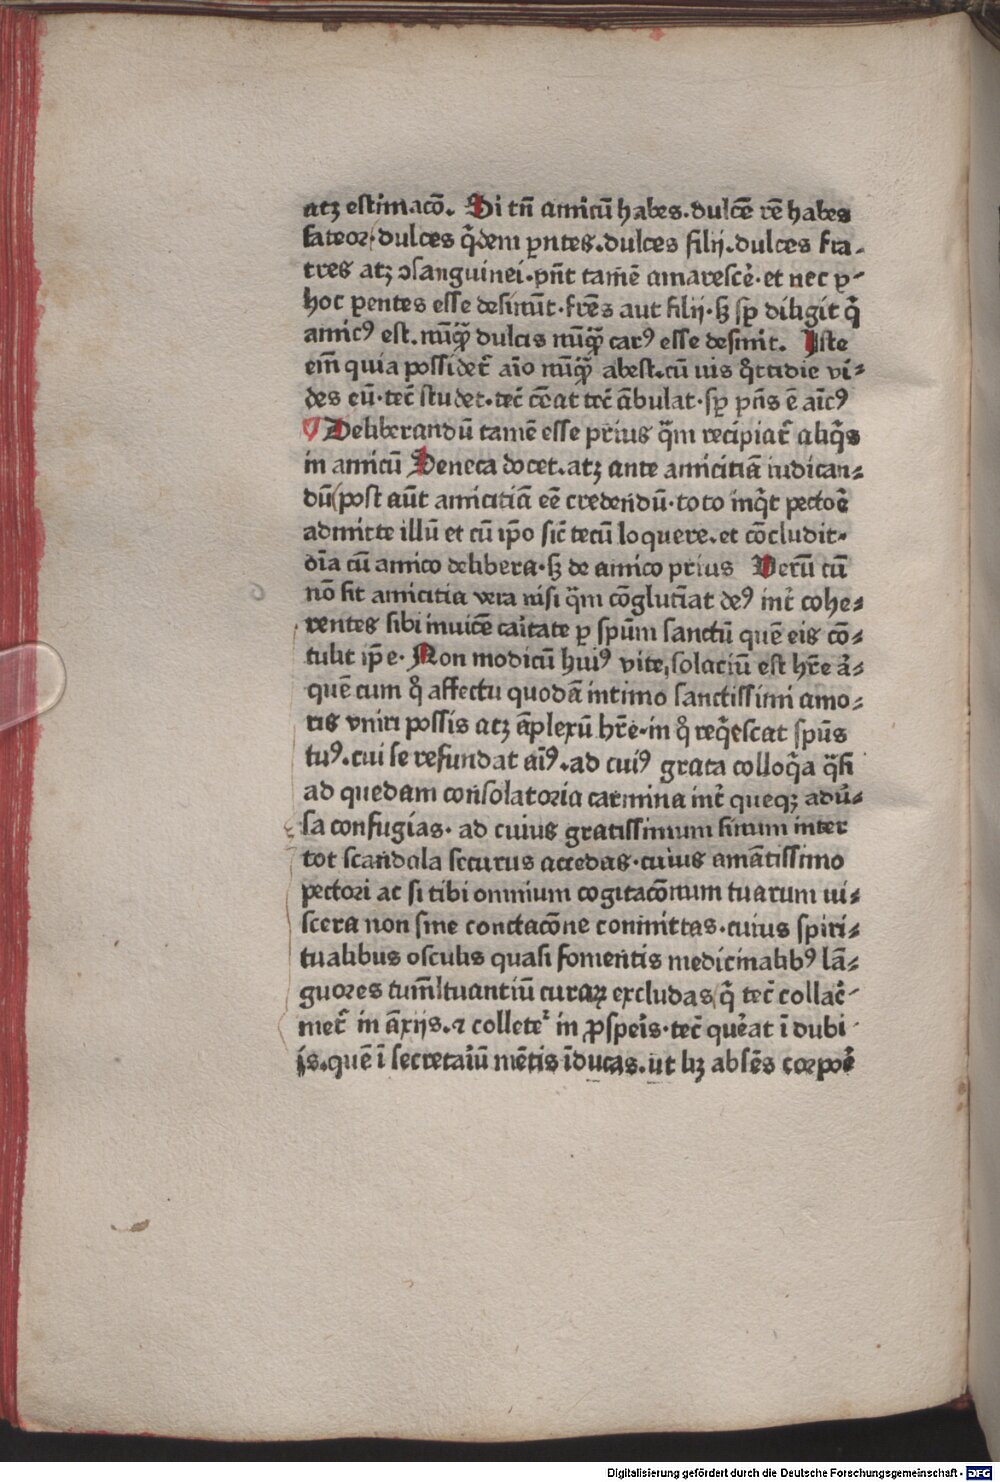 atꝫ estimacõ. Si tñ amicũ habes. dulcẽ rẽ habes
fateor, dulces q̃dem pñtes. dulces filij. dulces fra-
tres atꝫ ↄsanguinei. pñt tamẽ amarescẽ. et nec p-
hoc pentes esse desinũt. frẽs aut filij. sꝫ sp diligit q̃
amicꝰ est. nũq̃ dulcis nũq̃ carꝰ esse desinit. Iste
em̃ quia possidet̃ aĩo nũq̃ abest. cũ vis q̃ttidie vi-
des eũ. tec̃ studet. tec̃ cẽat tec̃ ãbulat. sp pñs ẽ aĩcꝰ
Deliberandũ tamẽ esse prius q̃m recipiat̃ aliq̃s
in amicũ Seneca docet. atꝫ ante amicitiã iudican-
dũ post aũt amicitiã eẽ credendũ. toto inq̃t pectoẽ
admitte illũ et cũ ip̃o sic̃ tecũ loquere. et cõcludit.
oĩa cũ amico delibera. sꝫ de amico prius Verũ cũ
nõ sit amicitia vera nisi q̃m cõglutĩat deꝰ int̃ cohe-
rentes sibi inuicẽ caĩtate p spũm sanctũ quẽ eis cõ-
tulit ip̃e. Non modicũ huiꝰ vite solaciũ est hr̃e ã-
quẽ cum q̊ affectu quodã intimo sanctissimi amo-
ris vniri possis atꝫ ãplexũ hr̃e. in q̊ req̃escat spũs
tuꝰ. cui se refundat aĩꝰ. ad cuiꝰ grata colloq̃a q̃si
ad quedam consolatoria carmina int̃ queqꝫ adũ-
sa confugias. ad cuius gratissimum sinum inter
tot scandala securus accedas. cuius amãtissimo
pectori ac si tibi omnium cogitacõnum tuarum ui-
scera non sine conctacõne conmittas. cuius spiri-
tualibus osculis quasi fomentis medicinalibꝰ lã-
guores tum̃ltuantiũ curaꝝ excludas q̃ tec̃ collac̃-
met̃ in ãxijs. ⁊ collete᷑ in ꝓspeĩs. tec̃ quẽat ĩ dubi
is. quẽ ĩ secretaĩũ mẽtis ĩducas. ut lꝫ absẽs corpoẽ
Digitalisierung gefördert durch die Deutsche Forschungsgemeinschaft - DFG